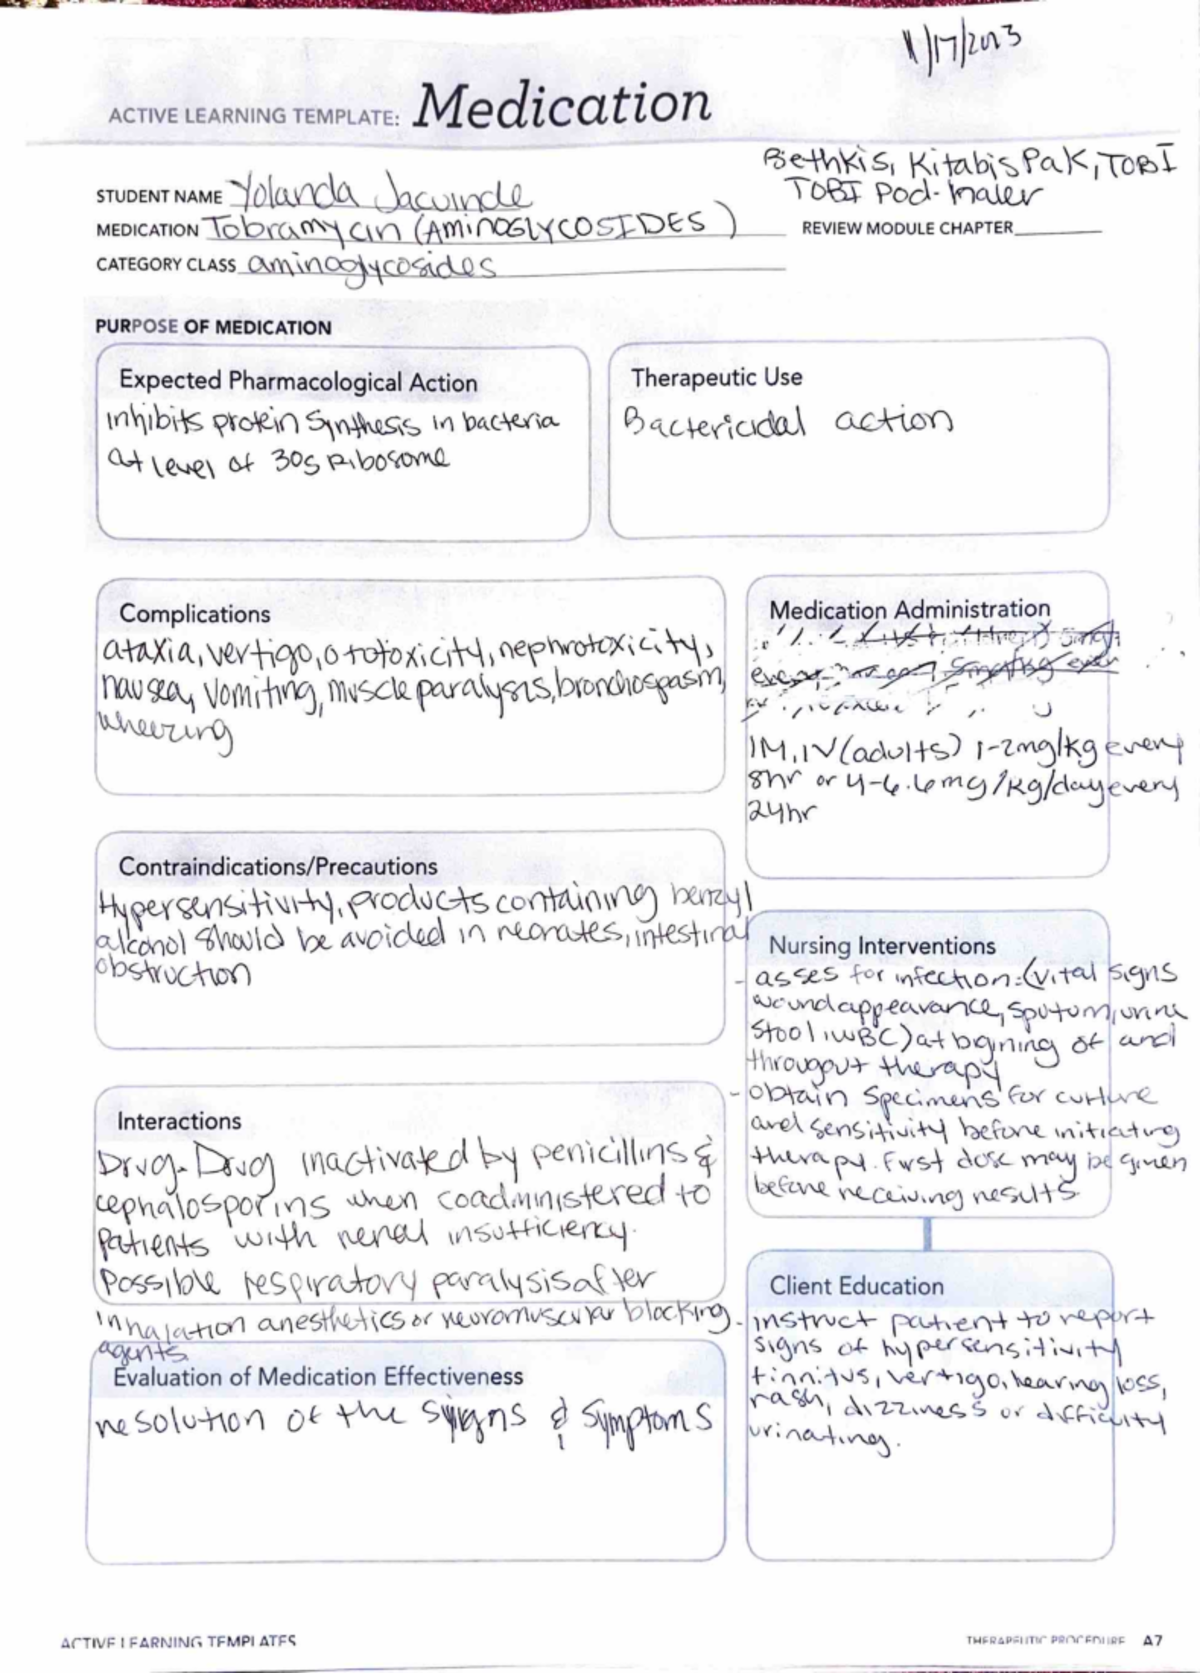 11/17/2023
ACTIVE LEARNING TEMPLATE: Medication
Bethkis, Kitabis Pak, TOBI
TOBI Pod-haler
STUDENT NAME Yolanda
MEDICATION Tobramycin (AMINOGLYCOSIDES)
REVIEW MODULE CHAPTER
CATEGORY CLASS aminoglycosides
PURPOSE OF MEDICATION
Expected Pharmacological Action
inhibits protein synthesis in bacteria
at level of 30s Ribosome
Therapeutic Use
Bactericidal action
Complications
ataxia, vertigo, ototoxicity, nephrotoxicity,
nausea, vomiting, muscle paralysis, bronchospasm,
wheezing
Medication Administration
IM, IV (adults) 1-2mg/kg every
8hr or 4-6.6mg/kg/day every
24hr
Contraindications/Precautions
Hypersensitivity, products containing benzyl
alcohol should be avoided in neonates, intestinal
obstruction
Nursing Interventions
- asses for infection: (vital signs
wound appearance, sputum, urine
stool, WBC) at bigining of and
througout therapy
- obtain specimens for culture
and sensitivity before initiating
therapy. First dose may be given
before receiving results.
Interactions
Drug-Drug inactivated by penicillins &
cephalosporins when coadministered to
patients with renal insufficiency.
Possible respiratory paralysis after
inhalation anesthetics or neuromuscular blocking
agents.
Client Education
- instruct patient to report
signs of hypersensitivity
tinnitus, vertigo, hearing loss,
rash, dizziness or difficulty
urinating.
Evaluation of Medication Effectiveness
resolution of the signs & symptoms
ACTIVE LEARNING TEMPLATES
THERAPEUTIC PROCEDURE A7